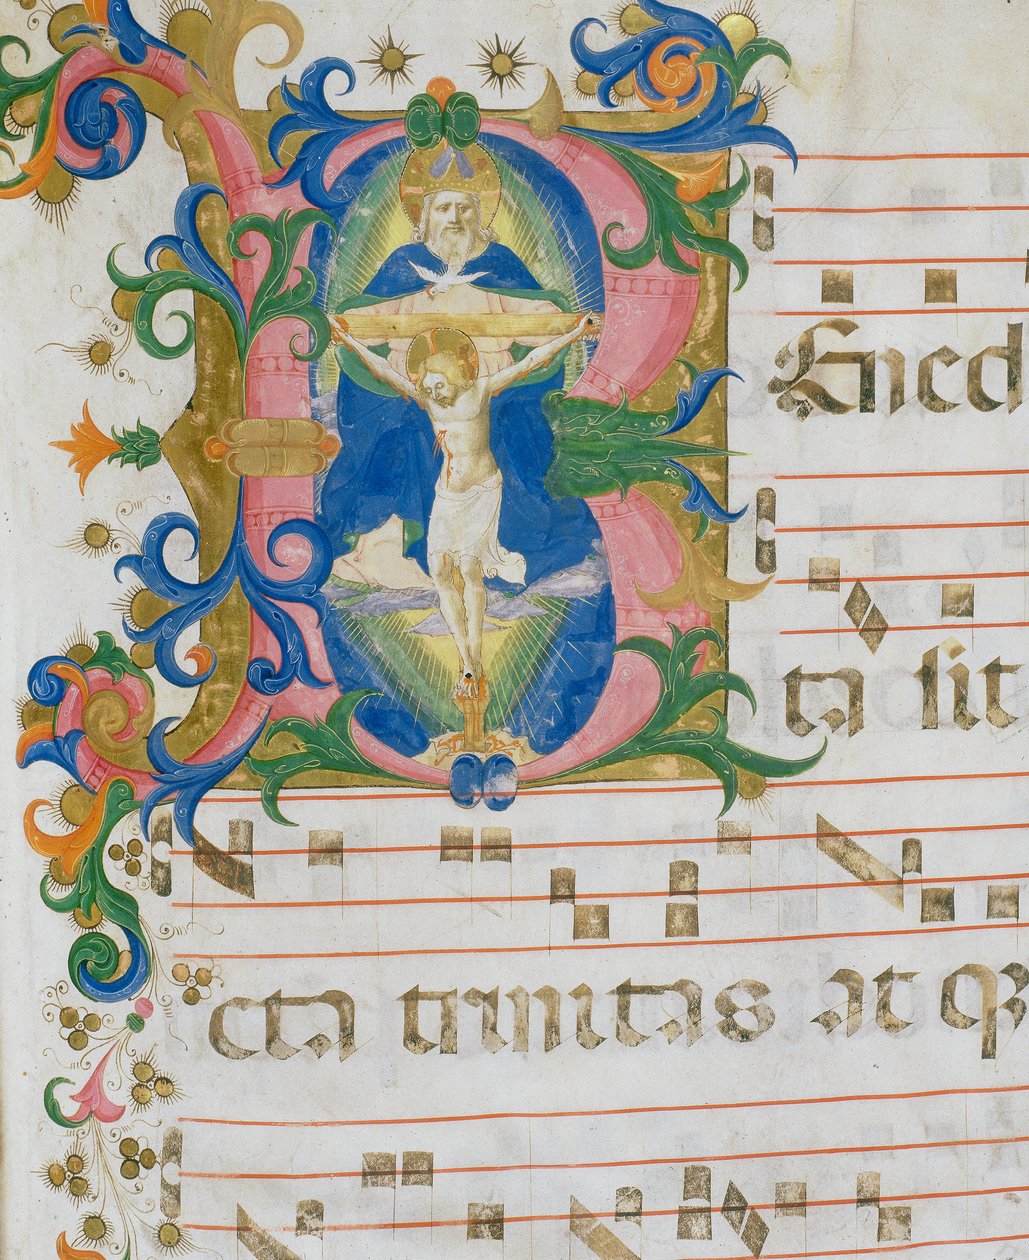 BEned
ta sit
cta trinitas at q